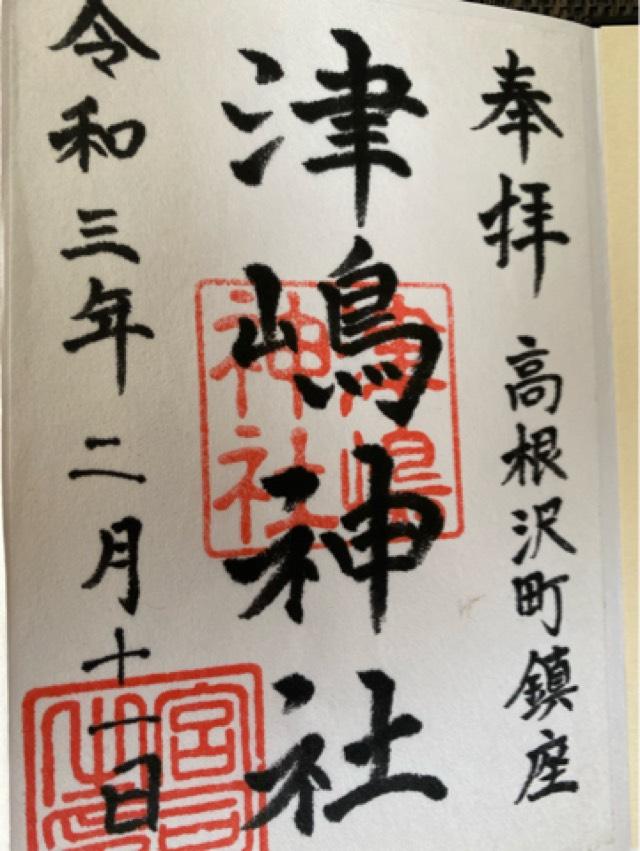 奉拝 高根沢町鎮座
津嶋神社
令和三年二月十一日
津嶋
神社
宮司
之印